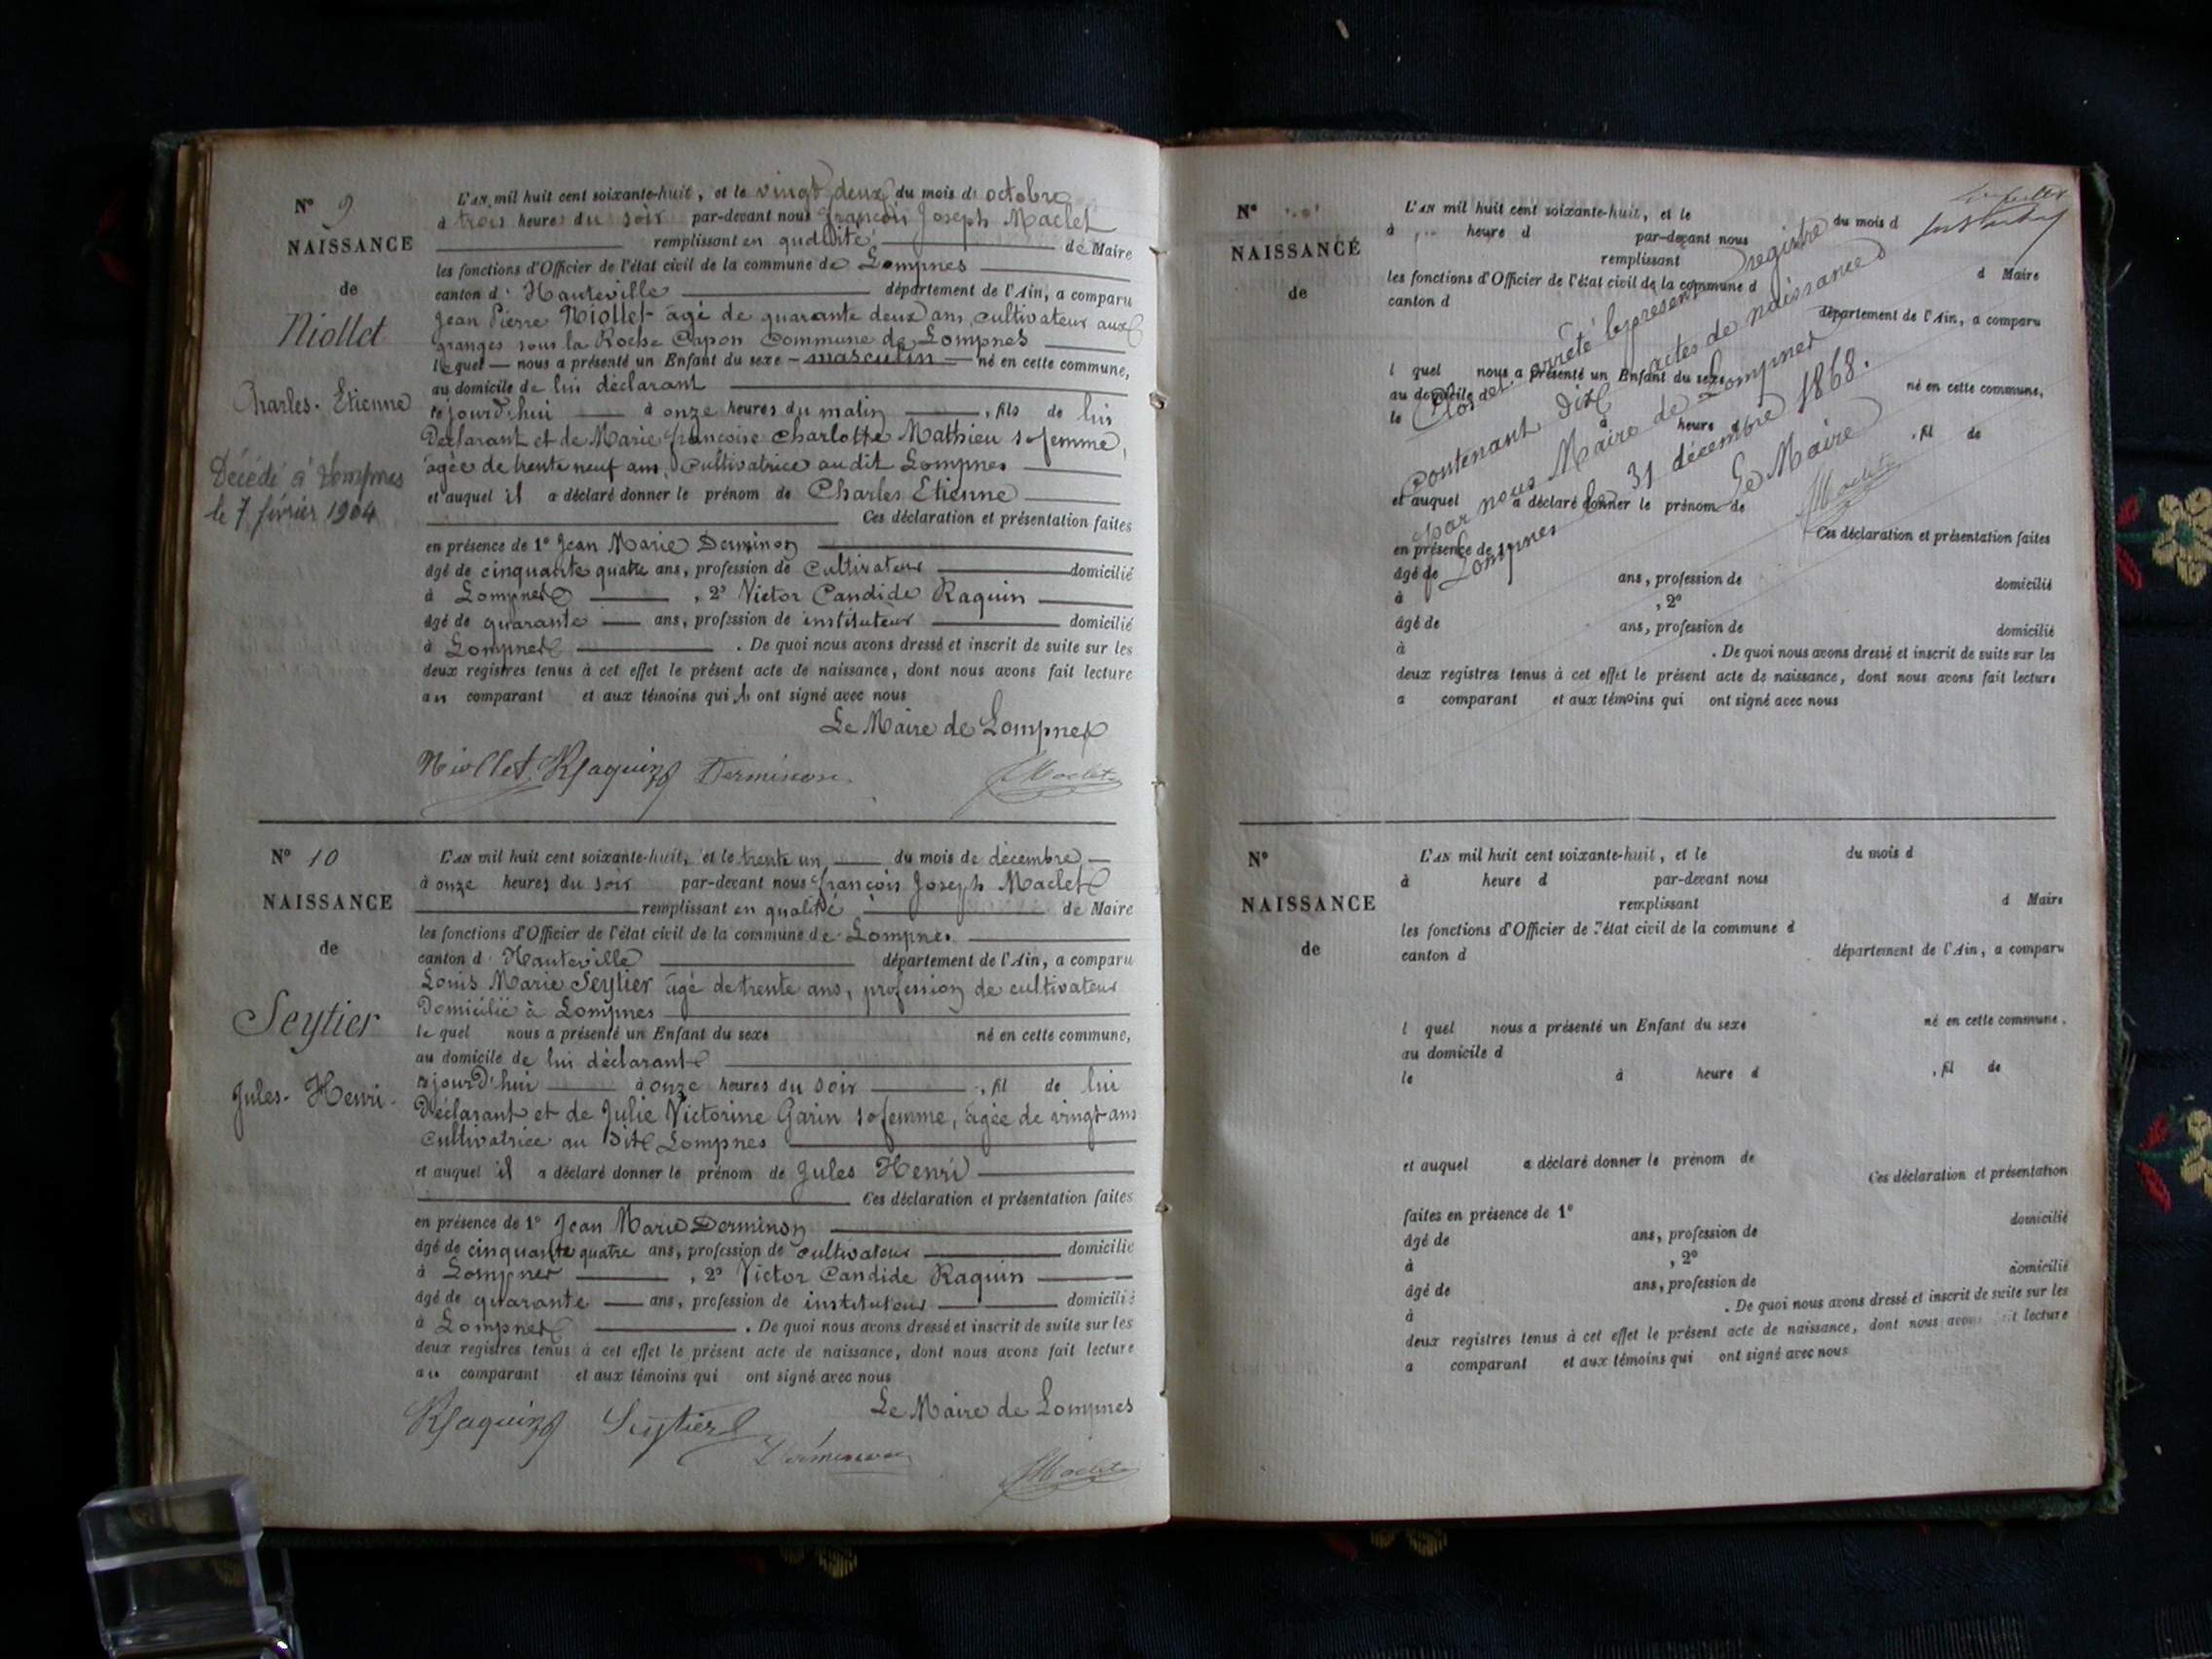 N° 9
NAISSANCE
de
Niollet
Charles-Etienne
Décédé à Lompnes
le 7 février 1904
L'AN mil huit cent soixante-huit, et le vingt deux du mois d'octobre
à trois heures du soir par-devant nous françois Joseph Maclet
remplissant en qualité de Maire
les fonctions d'Officier de l'état civil de la commune de Lompnes
canton d'Hauteville département de l'Ain, a comparu
Jean Pierre Niollet agé de quarante deux ans, cultivateur aux
granges sous la Roche Capon Commune de Lompnes
lequel nous a présenté un Enfant du sexe masculin né en cette commune,
au domicile de lui déclarant
cejourd'hui à onze heures du matin, fils de lui
Déclarant et de Marie françoise Charlotte Mathieu sa femme,
agée de trente neuf ans, Cultivatrice audit Lompnes
et auquel il a déclaré donner le prénom de Charles Etienne
Ces déclaration et présentation faites
en présence de 1° Jean Marie Derminon
âgé de cinquante quatre ans, profession de Cultivateur domicilié
à Lompnes, 2° Victor Candide Raquin
âgé de quarante ans, profession de instituteur domicilié
à Lompnes. De quoi nous avons dressé et inscrit de suite sur les
deux registres tenus à cet effet le présent acte de naissance, dont nous avons fait lecture
au comparant et aux témoins qui ont signé avec nous
Le Maire de Lompnes
Niollet Raquin Derminon Maclet
N° 10
NAISSANCE
de
Seytier
Jules-Henri
L'AN mil huit cent soixante-huit, et le trente un du mois de décembre
à onze heures du soir par-devant nous françois Joseph Maclet
remplissant en qualité de Maire
les fonctions d'Officier de l'état civil de la commune de Lompnes
canton d'Hauteville département de l'Ain, a comparu
Louis Marie Seytier âgé de trente ans, profession de cultivateur
Domicilié à Lompnes
lequel nous a présenté un Enfant du sexe né en cette commune,
au domicile de lui déclarant
cejourd'hui à onze heures du soir, fil de lui
Déclarant et de Julie Victorine Garin sa femme, agée de vingt ans
Cultivatrice au Dit Lompnes
et auquel il a déclaré donner le prénom de Jules Henri
Ces déclaration et présentation faites
en présence de 1° Jean Marie Derminon
âgé de cinquante quatre ans, profession de cultivateur domicilié
à Lompnes, 2° Victor Candide Raquin
âgé de quarante ans, profession de instituteur domicilié
à Lompnes. De quoi nous avons dressé et inscrit de suite sur les
deux registres tenus à cet effet le présent acte de naissance, dont nous avons fait lecture
au comparant et aux témoins qui ont signé avec nous
Le Maire de Lompnes
Raquin Seytier
Derminon
Maclet
N°
NAISSANCE
de
L'AN mil huit cent soixante-huit, et le du mois d
à heure d par-devant nous
remplissant d Maire
les fonctions d'Officier de l'état civil de la commune d
canton d département de l'Ain, a comparu
l quel nous a présenté un Enfant du sexe né en cette commune,
au domicile d
le à heure d, fil de
et auquel a déclaré donner le prénom de
Ces déclaration et présentation faites
en présence de 1°
âgé de ans, profession de domicilié
à, 2°
âgé de ans, profession de domicilié
à. De quoi nous avons dressé et inscrit de suite sur les
deux registres tenus à cet effet le présent acte de naissance, dont nous avons fait lecture
a comparant et aux témoins qui ont signé avec nous
Clos et arrêté le présent registre
Contenant dix actes de naissance
par nous Maire de Lompnes
Lompnes le 31 décembre 1868.
Le Maire
Maclet
N°
NAISSANCE
de
L'AN mil huit cent soixante-huit, et le du mois d
à heure d par-devant nous
remplissant d Maire
les fonctions d'Officier de l'état civil de la commune d
canton d département de l'Ain, a comparu
l quel nous a présenté un Enfant du sexe né en cette commune,
au domicile d
le à heure d, fil de
et auquel a déclaré donner le prénom de
Ces déclaration et présentation
faites en présence de 1°
âgé de ans, profession de domicilié
à, 2°
âgé de ans, profession de domicilié
à. De quoi nous avons dressé et inscrit de suite sur les
deux registres tenus à cet effet le présent acte de naissance, dont nous avons lecture
a comparant et aux témoins qui ont signé avec nous